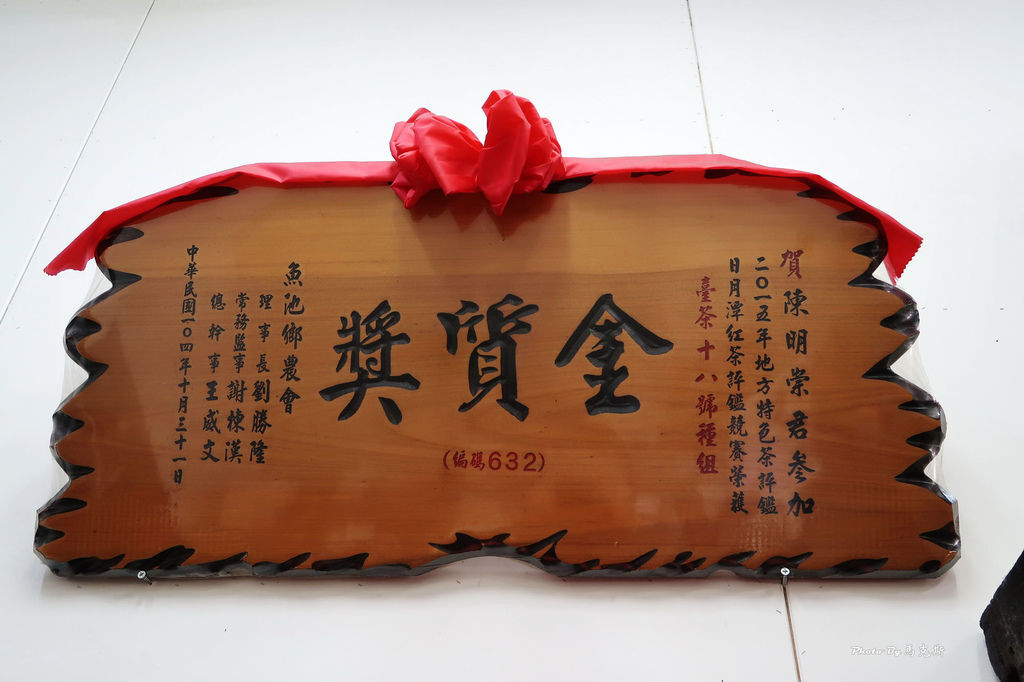 賀陳明崇君參加
二〇一五年地方特色茶評鑑
日月潭紅茶評鑑競賽榮獲
臺茶十八號種組
金質獎
(編碼632)
魚池鄉農會
理事長劉勝隆
常務監事謝棟漢
總幹事王威文
中華民國一〇四年十月三十一日
Photo By 馬克斯